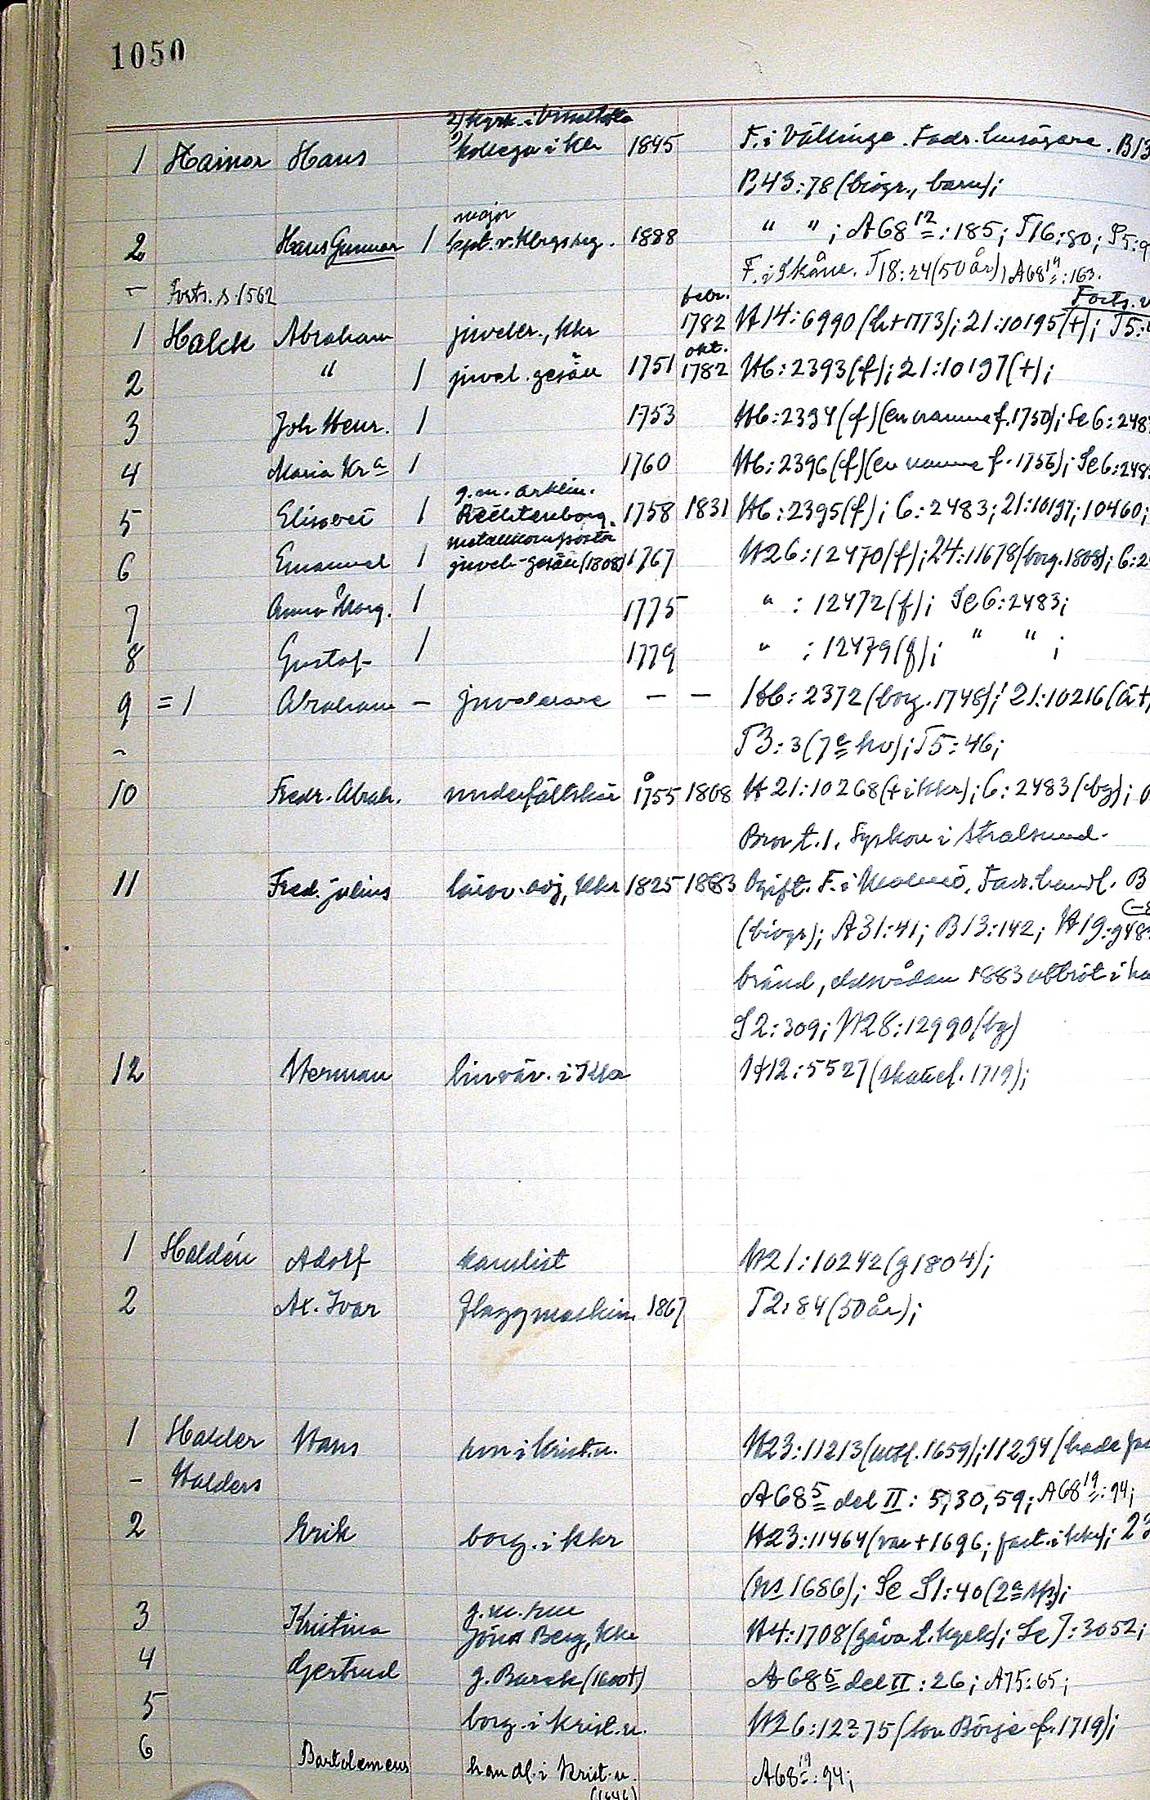 1050
1 Hainer Hans kollega i Kkr 1845 F. i Vällinge. Fadr. husägare. B13
B43:78 (biogr., barn);
major
2 Hans Gunnar 1 kapt. v. 1888 " " ; A68 12:185; T16:80; S5:9
F. i Skåne. T18:24 (50 år), A68 19:163.
– Forts. s. 1562 Forts.
febr.
1 Halck Abraham juveler., Kkr 1782 H14:6990 (h+1773); 21:10195 (+); T5:
okt.
2 " 1 juvel. gesäll 1751 1782 H6:2393 (f); 21:10197 (+);
3 Joh Henr. 1 1753 H6:2394 (f) (en namne f. 1750); Se 6:248
4 Maria Kr a 1 1760 H6:2396 (f) (en namne f. 1756); Se 6:248
g. m. artklöj.
5 Elisabet 1 1758 1831 H6:2395 (f); 6:2483; 21:10197; 10460;
6 Emanuel 1 juvel-gesäll (1808) 1767 H26:12470 (f); 24:11678 (borg. 1808); 6:2
7 Anna Marg. 1 1775 " : 12472 (f); Se 6:2483;
8 Gustaf 1 1779 " : 12479 (f); " " ;
9 =1 Abraham – juvelerare – – H6:2372 (borg. 1748); 21:10216
T3:3 (7e hv); T5:46;
10 Fredr. Abrah. underfältskär 1755 1808 H21:10268 (+ i Kkr); 6:2483 (bg);
Bror t. 1. Syskon i Stralsund.
11 Fred. Julius lärov. adj, Kkr 1825 1883 Ogift. F. i Malmö. Fadr. handl. B
(biogr); A31:41; B13:142; H19:948
bränd, eldsvådan 1883 utbröt i
S2:309; H28:12990 (bg)
12 Herman linväv. i Kra H12:5527 (skatel. 1719);
1 Haldén Adolf kanslist H21:10242 (g 1804);
2 Ax. Ivar flaggmaskin. 1867 T2:84 (50 år);
1 Halder Hans i Krist.n. H23:11213 (1659); 11294 (hade
– Halders A68 5 del II: 5, 30, 59; A68 19:94;
2 Erik borg. i Kkr H23:11464 (var + 1696; fast. i Kkr); 23
(ns 1686); Se S1:40
g. m.
3 Kristina Jöns Berg, Kkr H4:1708 (gåva t. kyrk); Se 7:3052;
4 Gertrud g. Barck (1600t) A68 5 del II: 26; A75:65;
5 borg. i Krist.n. H26:12375 (son Börje f. 1719);
6 Bartolomeus handl. i Krist.n. A68 19:94;
(1646)